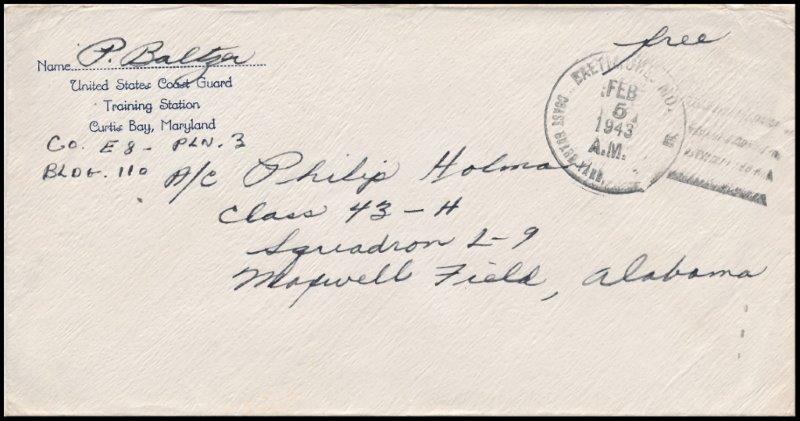 Name P. Baltzer
United States Coast Guard
Training Station
Curtis Bay, Maryland
Co. E8 - PLN. 3
BLDG. 110
free
BALTIMORE, MD.
FEB
5
1943
A.M.
COAST GUARD
A/C Philip Holma
Class 43-H
Squadron L-9
Maxwell Field, Alabama